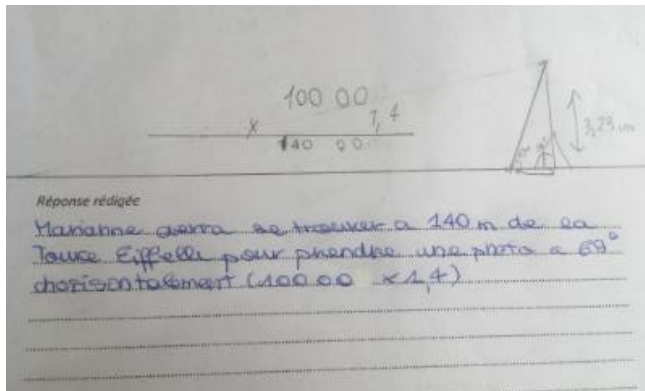 100 00
x 1,4
140 00
3,23 cm
Réponse rédigée
Marianne devra se trouver a 140 m de la
Tource Eiffelle pour phendse une photo a 69°
chorisontalement (100 00 x 1,4)